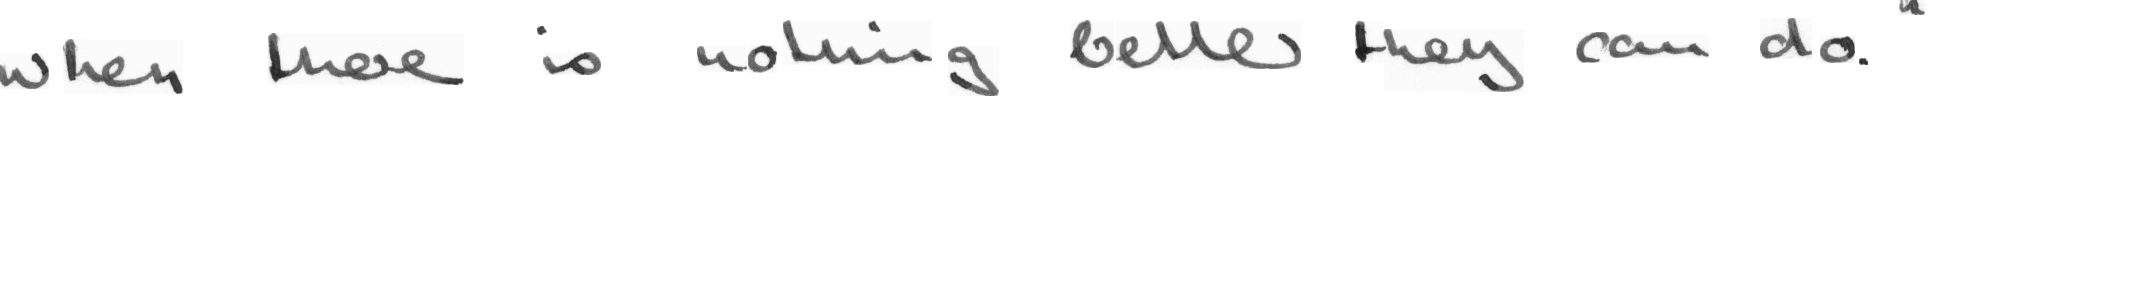 when there is nothing better they can do."